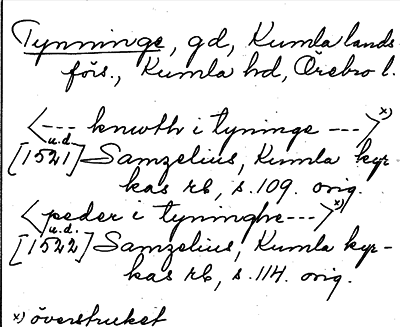 Tynninge, gd, Kumla lands
förs., Kumla hd, Örebro l.
<--- knwth i tyninge --->x)
u.d.
[1521] Samzelius, Kumla kyr-
kas rb, s. 109. orig.
<peder i tyninghe --->x)
u.d.
[1522] Samzelius, Kumla kyr-
kas rb, s. 114. orig.
x) överstruket